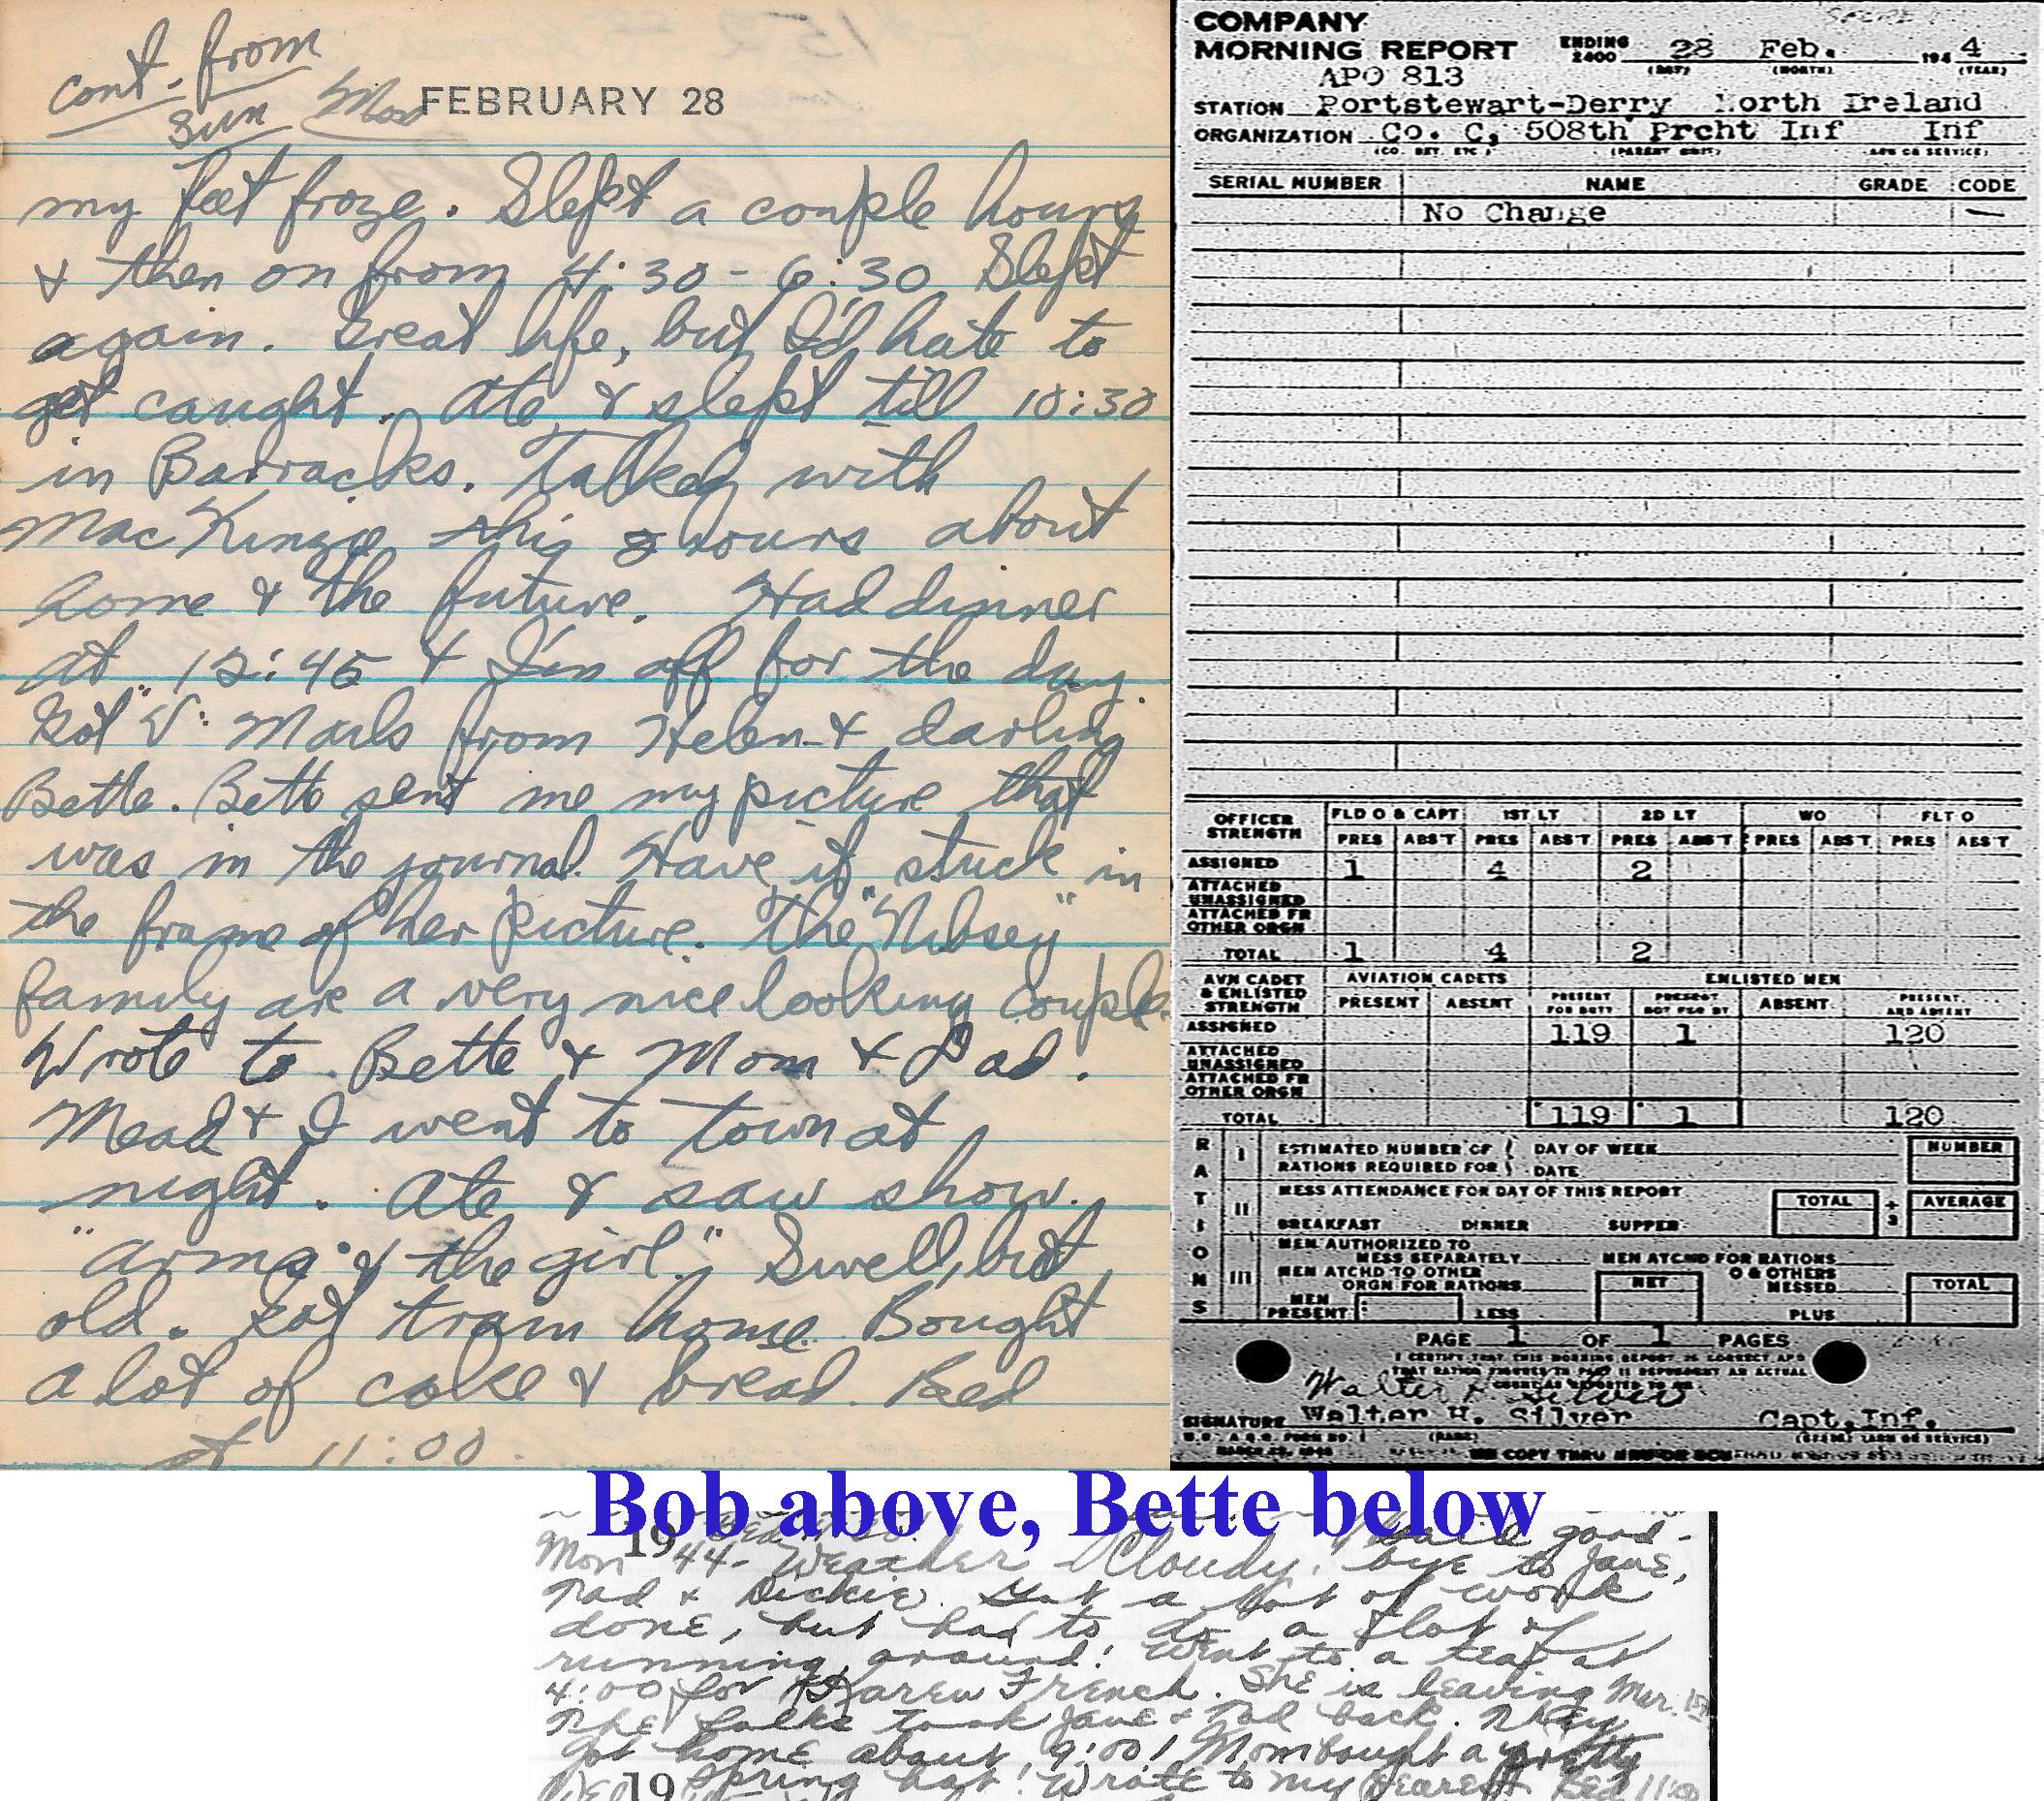 cont. from
Sun Mon FEBRUARY 28
my feet froze. Slept a couple hours
& then on from 4:30 - 6:30 Slept
again. Great life, but I'd hate to
get caught. Ate & slept till 10:30
in Barracks. Talked with
MacKinzie this 2 hours about
home & the future. Had dinner
at 12:45 & I'm off for the day.
Got V. Mails from Helen & darling
Bette. Bette sent me my picture that
was in the journal. Have it stuck in
the frame of her picture. The "Nibsey"
family are a very nice looking couple.
Wrote to Bette & Mom & Dad.
Mead & I went to town at
night. Ate & saw show.
"Arms & the girl." Swell, but
old. Got train home. Bought
a lot of cake & bread. Bed
at 11:00.
COMPANY
MORNING REPORT ENDING 2400 28 Feb. 1944
(DAY) (MONTH) (YEAR)
APO 813
STATION Portstewart-Derry North Ireland
ORGANIZATION Co. C, 508th Prcht Inf Inf
(CO. DET. ETC.) (PARENT UNIT) (ARM OR SERVICE)
SERIAL NUMBER NAME GRADE CODE
No Change —
OFFICER STRENGTH FLD O & CAPT 1ST LT 2D LT WO FLT O
PRES ABS'T PRES ABS'T PRES ABS'T PRES ABS'T PRES ABS'T
ASSIGNED 1 4 2
ATTACHED UNASSIGNED
ATTACHED FR OTHER ORGN
TOTAL 1 4 2
AVN CADET & ENLISTED STRENGTH AVIATION CADETS ENLISTED MEN
PRESENT ABSENT PRESENT FOR DUTY PRESENT NOT FOR DY ABSENT PRESENT AND ABSENT
ASSIGNED 119 1 120
ATTACHED UNASSIGNED
ATTACHED FR OTHER ORGN
TOTAL 119 1 120
RATIONS
I ESTIMATED NUMBER OF RATIONS REQUIRED FOR DAY OF WEEK DATE NUMBER
II MESS ATTENDANCE FOR DAY OF THIS REPORT TOTAL ÷ 3 AVERAGE
BREAKFAST DINNER SUPPER
III MEN AUTHORIZED TO MESS SEPARATELY MEN ATCHD FOR RATIONS
MEN ATCHD TO OTHER ORGN FOR RATIONS NET O & OTHERS MESSED TOTAL
MEN PRESENT LESS PLUS
PAGE 1 OF 1 PAGES
I CERTIFY THAT THIS MORNING REPORT IS CORRECT AND
THAT RATION FIGURES IN PART II REPRESENT AN ACTUAL
Walter H Silver
SIGNATURE Walter H. Silver Capt. Inf.
(NAME) (GRADE) (ARM OR SERVICE)
Bob above, Bette below
said good-
Mon 1944- Weather Cloudy. bye to Jane,
Tad & Dickie. Got a lot of work
done, but had to do a lot of
running around! Went to a tea at
4:00 for Karen French. She is leaving Mar. 1st
The folks took Jane & Tad back. They
got home about 9:00! Mom bought a pretty
spring hat! Wrote to my Dearest Bed 11:00
Wed 19